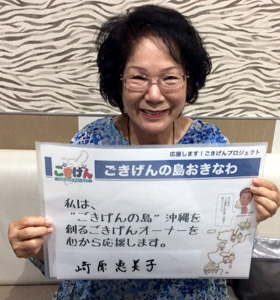 応援します！ごきげんプロジェクト
ごきげん
ごきげんの島おきなわ
私は、
“ごきげんの島”沖縄を
創るごきげんオーナーを
心から応援します。
崎原恵美子